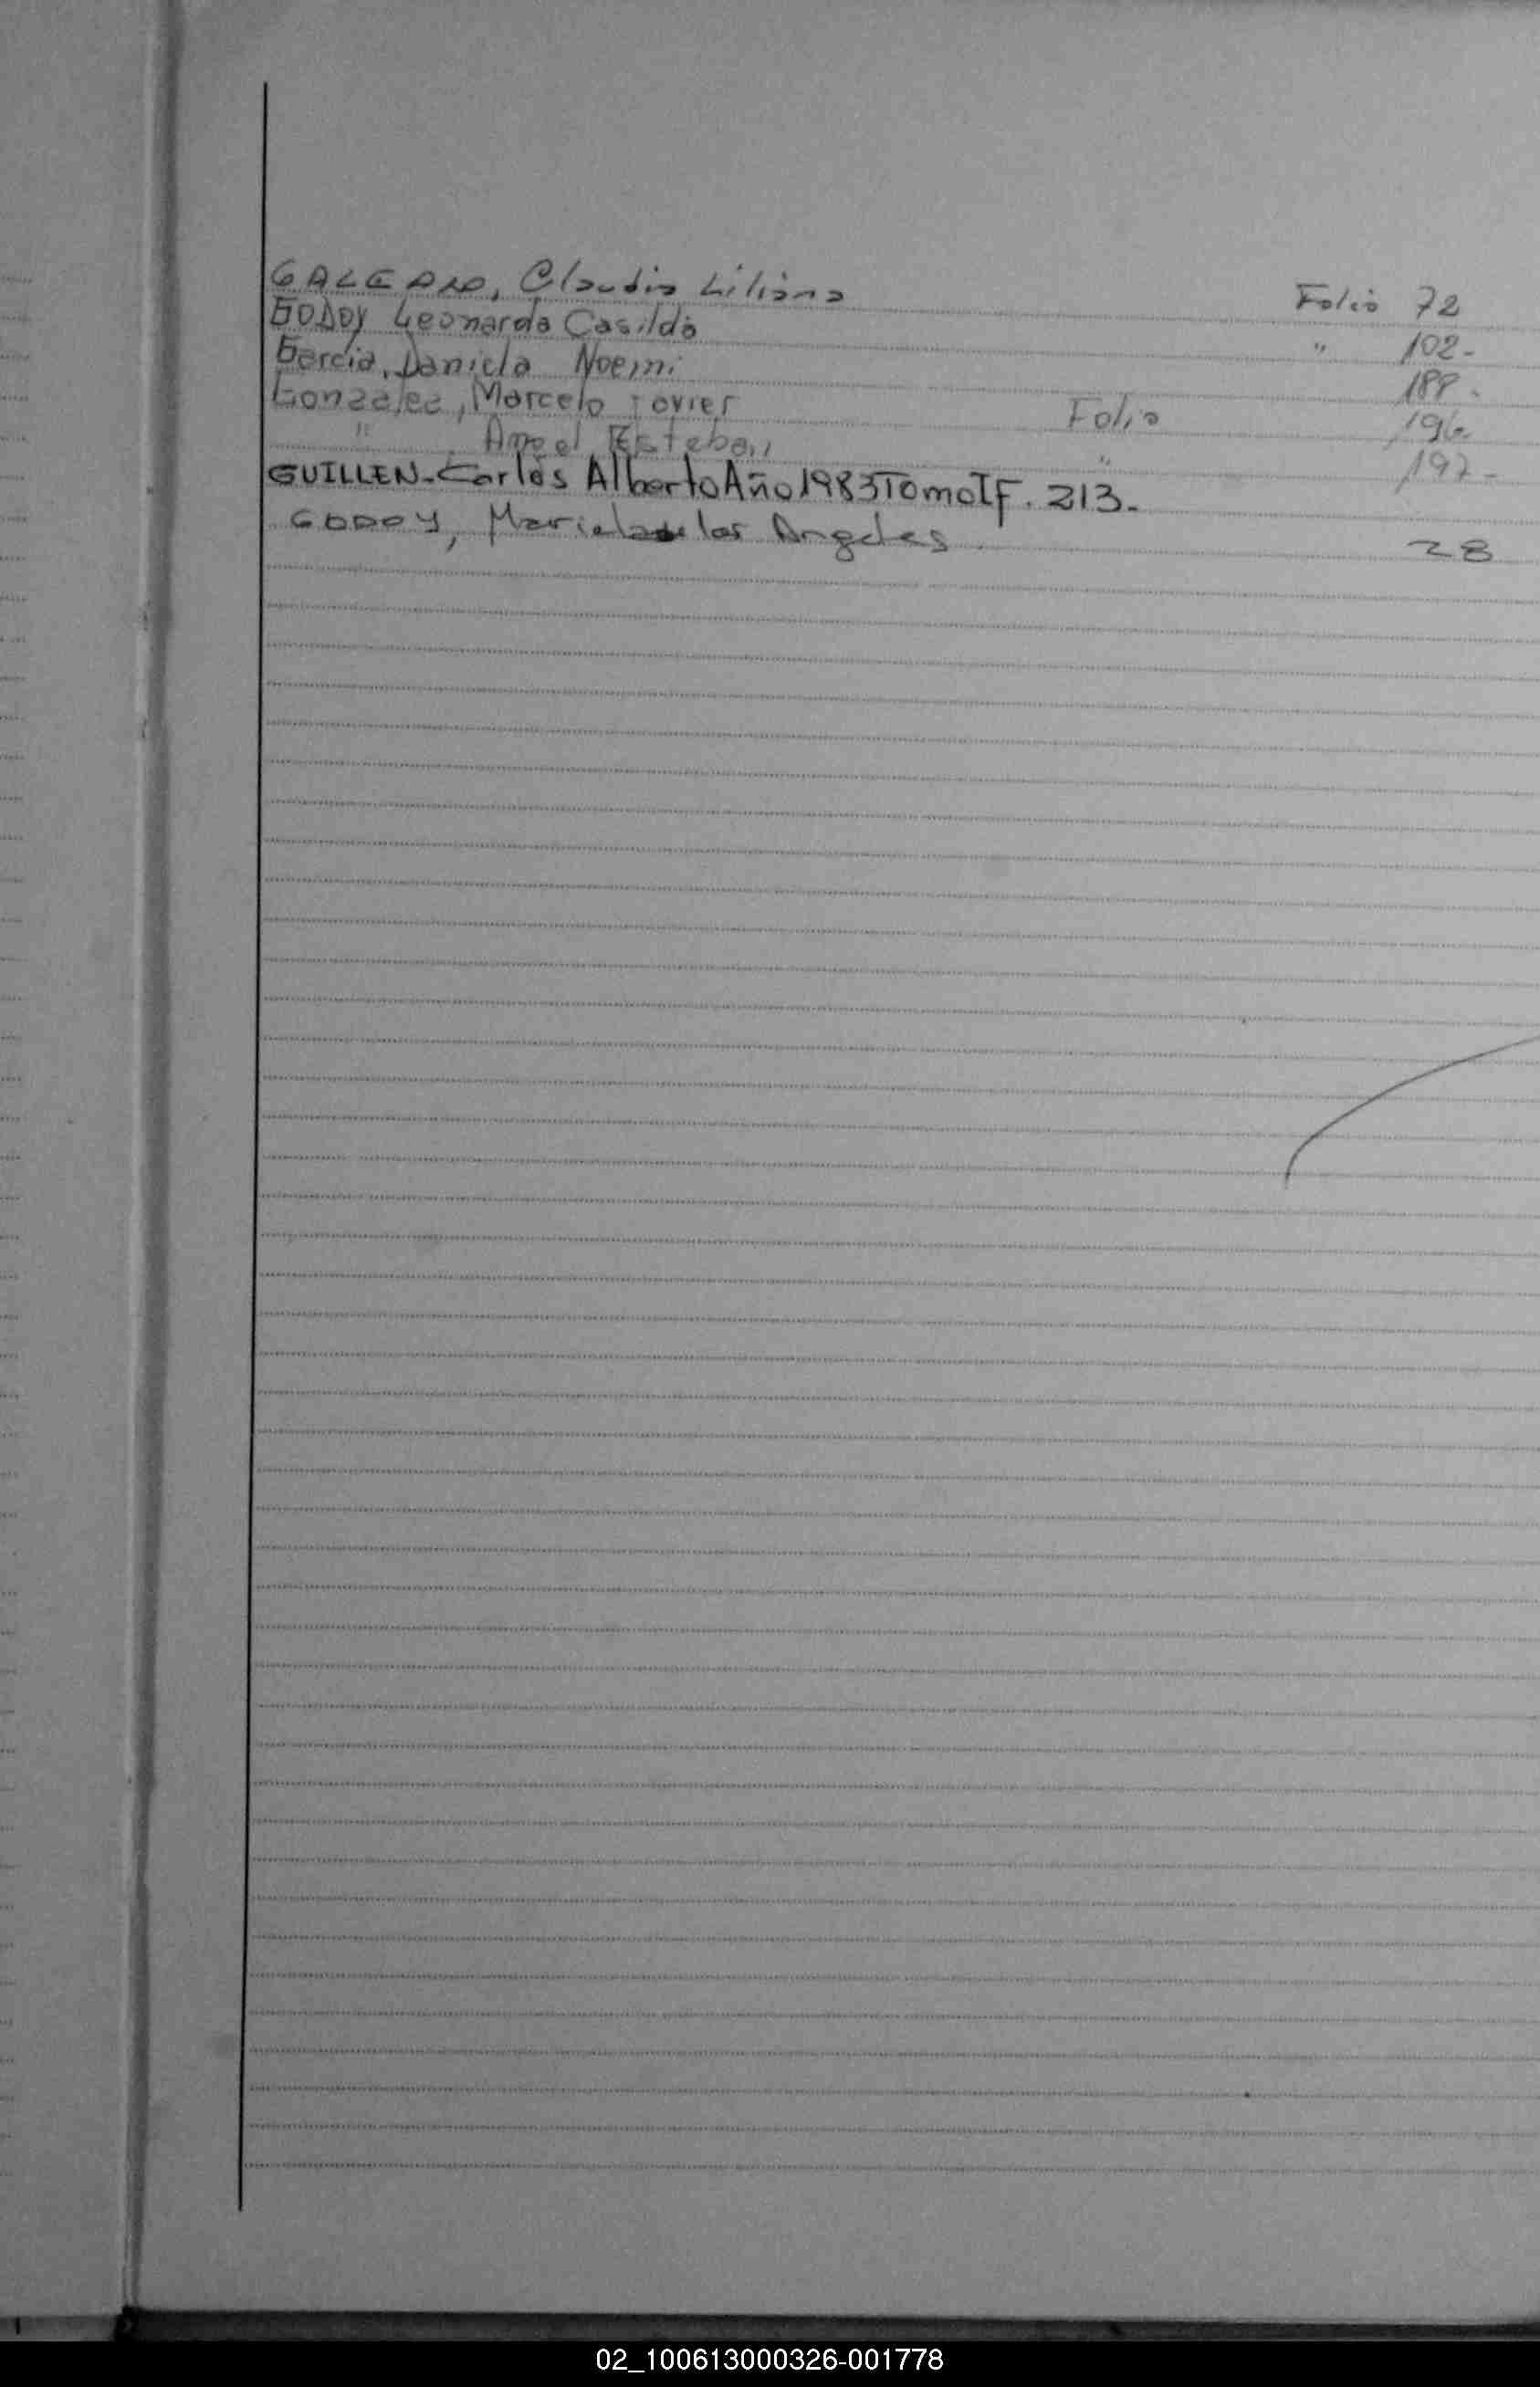 GALEANO, Claudia Liliana Folio 72
GODOY Leonarda Casilda " 102-
Garcia, Daniela Noemi 188.
Gonzalez, Marcelo Javier Folio 196
" Angel Esteban " 197-
GUILLEN-Carlos Alberto Año 1983 Tomo I F. 213.
GODOY, Mariela de los Angeles 28
02_100613000326-001778